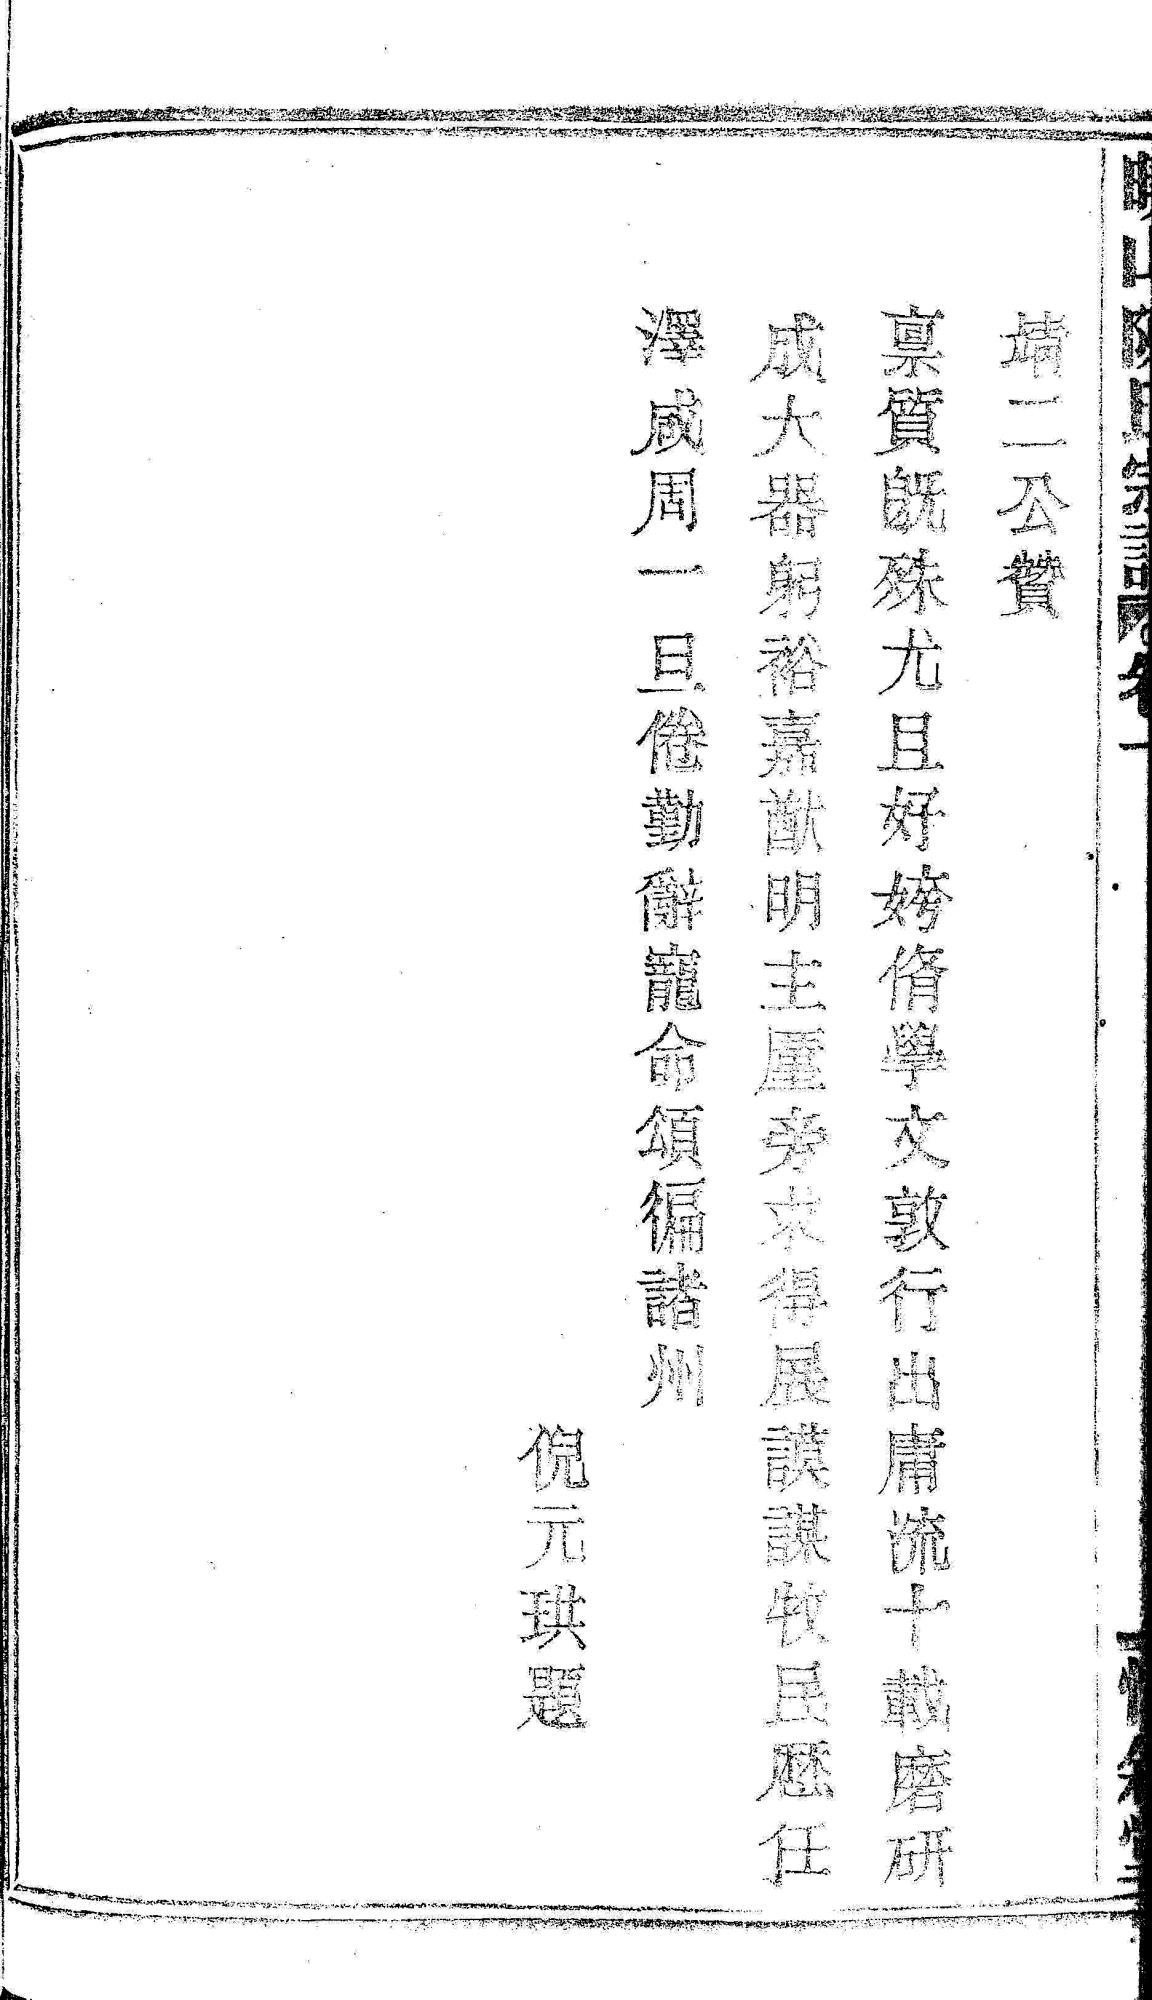 靖二公贊
稟質既殊尤且好姱脩學文敦行出庸流十載磨研
成大器躬裕嘉猷明主厪旁求得展謨謀牧民歷任
澤咸周一旦倦勤辭寵命頌徧諸州
倪元珙題
山陳氏宗譜 卷一